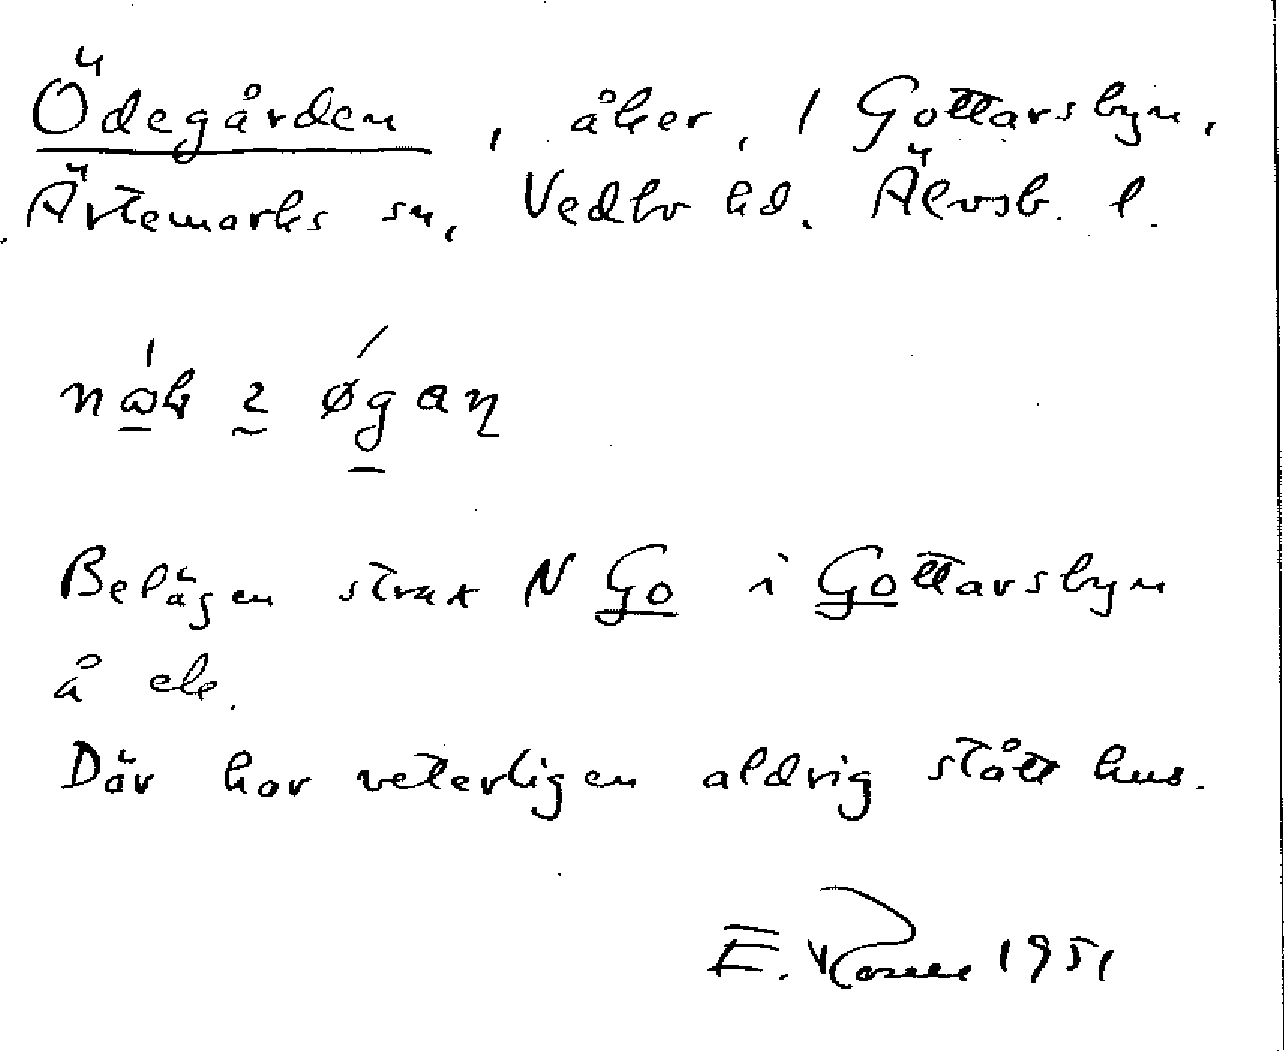 Ödegården, åker, / Gottarsbyn,
Ärtemarks sn, Vedbo hd. Älvsb. l.
Belägen strax N Go i Gottarsbyn
å ek.
Där har veterligen aldrig stått hus.
E. 1951